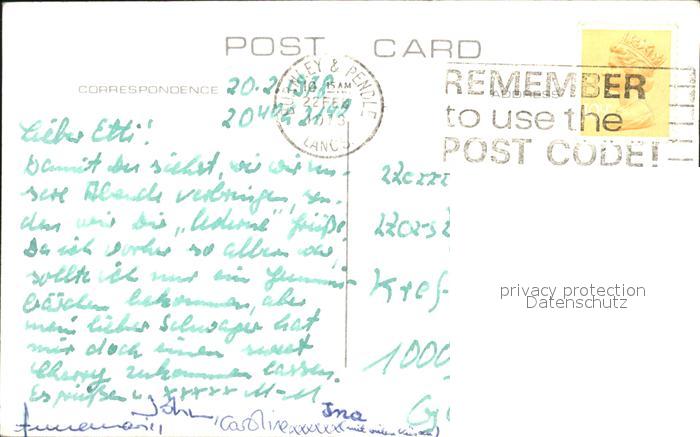 POST CARD
CORRESPONDENCE
ADDRESS
BURNLEY & PENDLE
10 15 AM
22 FEB
LANCS
REMEMBER
to use the
POST CODE!
20.2.
Lieber Etti!
Damit du siehst, wie wir un-
sere Abende verbringen, sen-
den wir Dir „lederne" Grüße!
Da ich vorher so albern war,
sollte ich nur ein Gummi-
bärchen bekommen, aber
mein lieber Schwager hat
mir doch einen sweet
Cherry zukommen lassen.
Es grüßen u. xxxxx M-M
John,
Annemarie, Caroline xxxxxx
Ina
(mit vielen Küssen)
Kref-
1000
privacy protection
Datenschutz